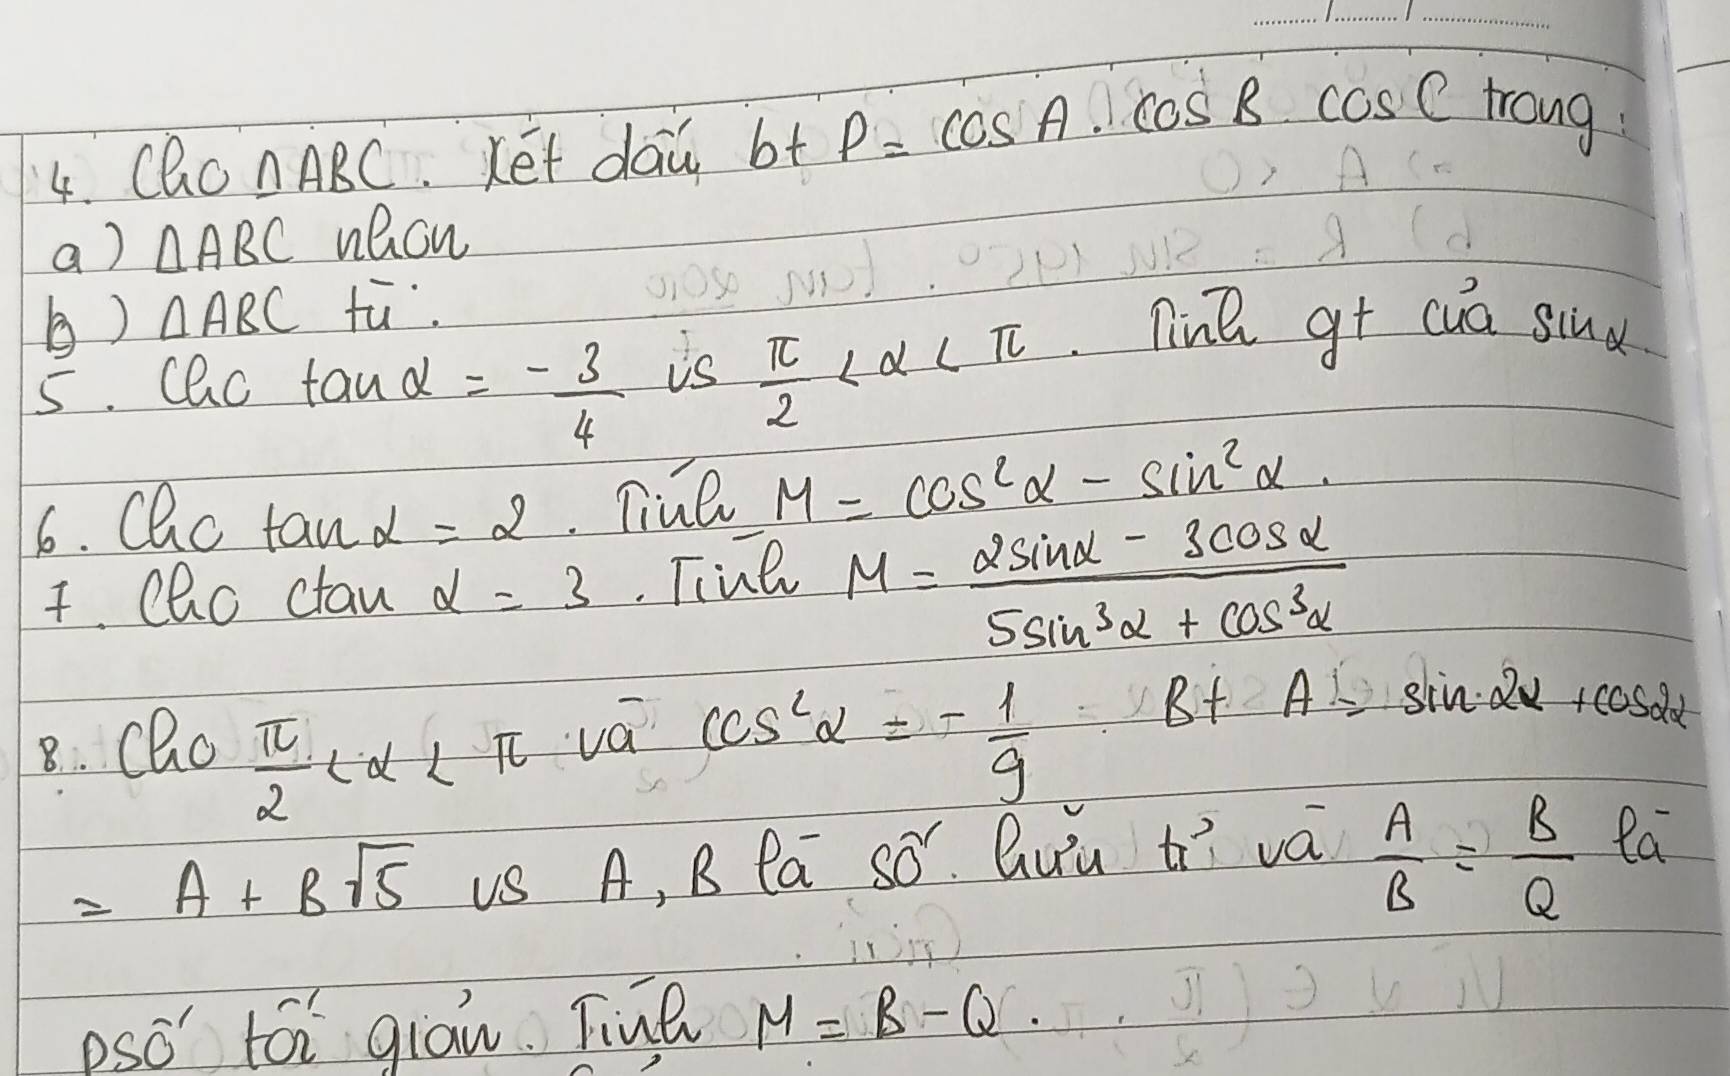 4. Cho ΔABC. Xét dấu bt P = cos A. cos B. cos C trong:
a) ΔABC nhọn
b) ΔABC tù.
5. Cho tan α = -3/4 vs π/2 < α < π. Tính gt của sin α.
6. Cho tan α = 2. Tính M = cos²α - sin²α.
7. Cho ctan α = 3. Tính M = (2sinα - 3cosα)/(5sin³α + cos³α)
8. Cho π/2 < α < π và cos²α = -1/9. Bt A = sin 2α + cos2α
= A + B√5 vs A, B là số hữu tỉ và A/B = B/Q là
psố tối giản. Tính M = B - Q.